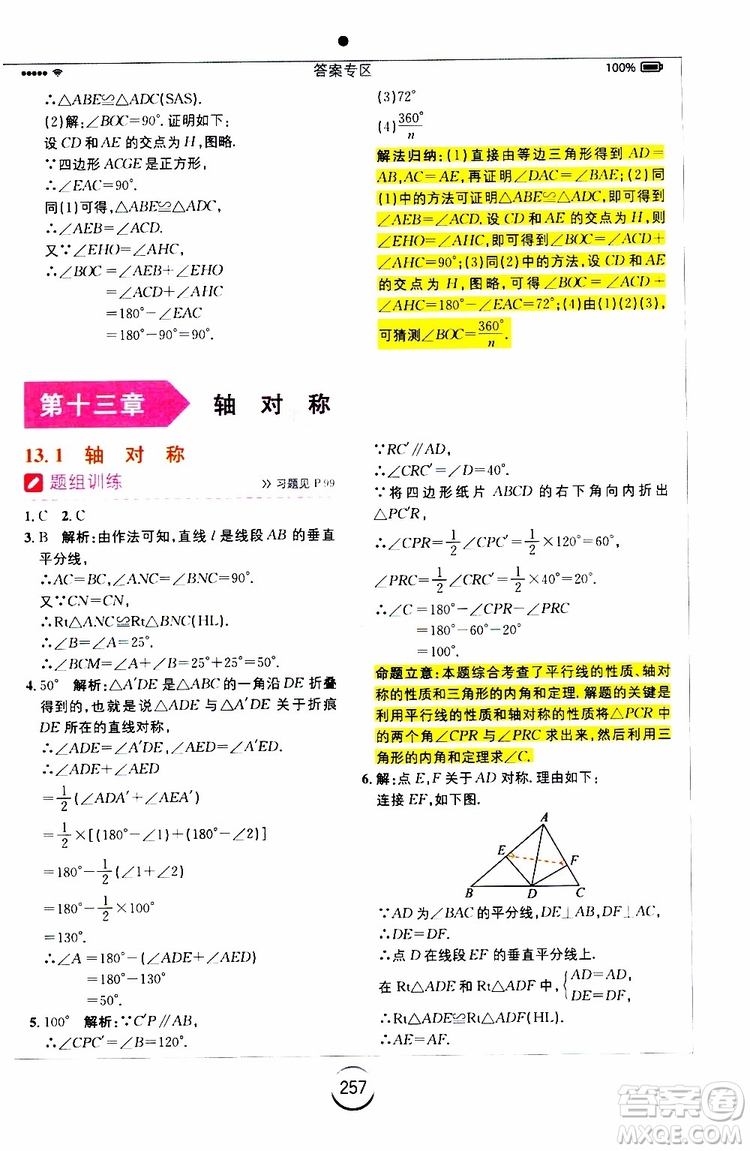 答案专区
100%
∴△ABE≌△ADC(SAS).
(2)解:∠BOC=90°. 证明如下:
设 CD 和 AE 的交点为 H,图略.
∵四边形 ACGE 是正方形,
∴∠EAC=90°.
同(1)可得,△ABE≌△ADC,
∴∠AEB=∠ACD.
又∵∠EHO=∠AHC,
∴∠BOC=∠AEB+∠EHO
=∠ACD+∠AHC
=180°-∠EAC
=180°-90°=90°.
(3)72°
(4)360°/n
解法归纳:(1)直接由等边三角形得到 AD=
AB,AC=AE,再证明∠DAC=∠BAE;(2)同
(1)中的方法可证明△ABE≌△ADC,则可得
∠AEB=∠ACD. 设 CD 和 AE 的交点为 H,则
∠EHO=∠AHC,即可得到∠BOC=∠ACD+
∠AHC=90°;(3)同(2)中的方法,设 CD 和 AE
的交点为 H,图略,可得∠BOC=∠ACD+
∠AHC=180°-∠EAC=72°;(4)由(1)(2)(3),
可猜测∠BOC=360°/n.
第十三章 轴 对 称
13.1 轴 对 称
题组训练
>> 习题见 P99
1. C 2. C
3. B 解析:由作法可知,直线 l 是线段 AB 的垂直
平分线,
∴AC=BC,∠ANC=∠BNC=90°.
又∵CN=CN,
∴Rt△ANC≌Rt△BNC(HL).
∴∠B=∠A=25°.
∴∠BCM=∠A+∠B=25°+25°=50°.
4. 50° 解析:△A′DE 是△ABC 的一角沿 DE 折叠
得到的,也就是说△ADE 与△A′DE 关于折痕
DE 所在的直线对称,
∴∠ADE=∠A′DE,∠AED=∠A′ED.
∴∠ADE+∠AED
=1/2(∠ADA′+∠AEA′)
=1/2×[(180°-∠1)+(180°-∠2)]
=180°-1/2(∠1+∠2)
=180°-1/2×100°
=130°.
∴∠A=180°-(∠ADE+∠AED)
=180°-130°
=50°.
5. 100° 解析:∵C′P∥AB,
∴∠CPC′=∠B=120°.
∵RC′∥AD,
∴∠CRC′=∠D=40°.
∵将四边形纸片 ABCD 的右下角向内折出
△PC′R,
∴∠CPR=1/2∠CPC′=1/2×120°=60°,
∠PRC=1/2∠CRC′=1/2×40°=20°.
∴∠C=180°-∠CPR-∠PRC
=180°-60°-20°
=100°.
命题立意:本题综合考查了平行线的性质、轴对
称的性质和三角形的内角和定理. 解题的关键是
利用平行线的性质和轴对称的性质将△PCR 中
的两个角∠CPR 与∠PRC 求出来,然后利用三
角形的内角和定理求∠C.
6. 解:点 E,F 关于 AD 对称. 理由如下:
连接 EF,如下图.
A
E
F
B
D
C
∵AD 为∠BAC 的平分线,DE⊥AB,DF⊥AC,
∴DE=DF.
∴点 D 在线段 EF 的垂直平分线上.
在 Rt△ADE 和 Rt△ADF 中,{AD=AD,
DE=DF,
∴Rt△ADE≌Rt△ADF(HL).
∴AE=AF.
257
答案圈
MXQE.COM